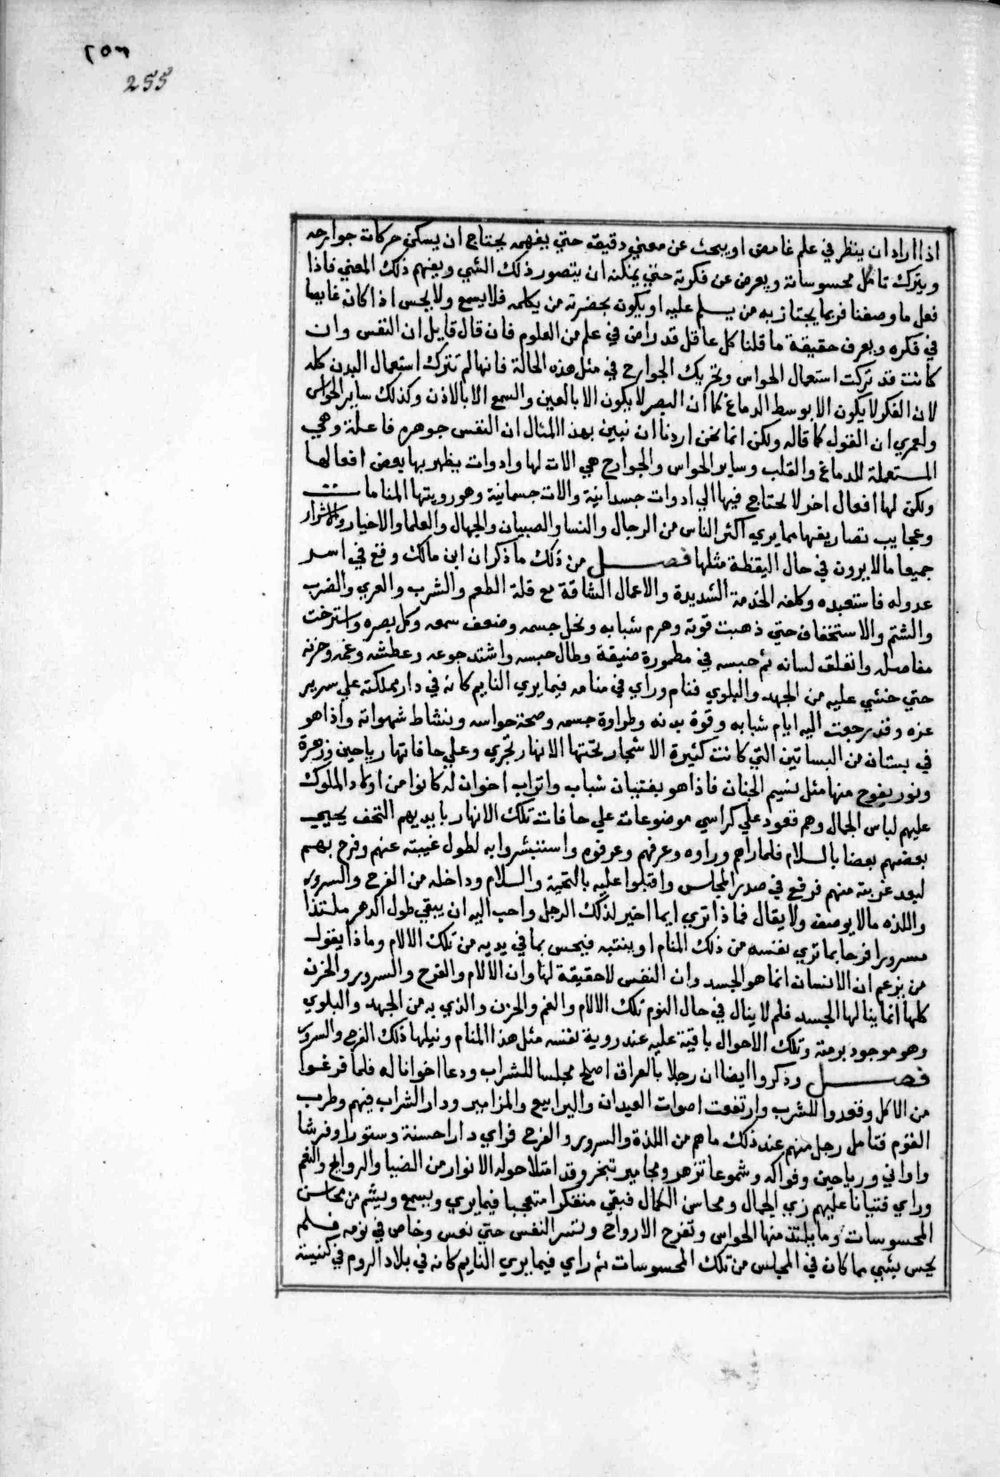 ٢٥٣
255
اذا اراد ان ينظر في علم غامض او يبحث عن معني دقيقه حتي يفهمه يحتاج ان يسكن حركات جوارحه
ويترك تامل محسوساته ويعرض عن فكرته حتي يمكنه ان يتصور ذلك الشي ويفهم ذلك المعني فاذا
فعل ما وصفنا فربما يجتاز به من يسلم عليه او يكون بحضرته من يكلمه فلا يسمع ولا يحس اذا كان غايبا
في فكره ويعرف حقيقة ما قلنا كل عاقل قد راض في علم من العلوم فان قال قايل ان النفس وان
كانت قد تركت استعمال الحواس وتحريك الجوارح في مثل هذه الحالة فانها لم تترك استعمال البدن كله
لان الفكر لا يكون الا بوسط الدماغ كما ان البصر لا يكون الا بالعين والسمع الا بالاذن وكذلك ساير الحواس
ولعمري ان القول كما قاله ولكن انما نحن اردنا ان نبين بهذا المثال ان النفس جوهره فاعلة وهي
المستعملة للدماغ والقلب وساير الحواس والجوارح هي الات لها وادوات يظهر بها بعض افعالها
ولكن لها افعال اخر لا تحتاج فيها الي ادوات جسدانية والات جسمانية وهو رويتها المنامات
وعجايب تصاريفها مما يري اكثر الناس من الرجال والنسا والصبيان والجهال والعلما والاخيار والاشرار
جميعا ما لا يرون في حال اليقظة مثلها فصل من ذلك ما ذكر ان ابن مالك وقع في اسر
عدو له فاستعبده وكلفه الخدمة الشديدة والاعمال الشاقة مع قلة الطعم والشرب والعري والضرب
والشتم والاستخفاف حتي ذهبت قوته وهرم شبابه ونحل جسمه وضعف سمعه وكل بصره واسترخت
مفاصله وانغلق لسانه ثم حبسه في مطمورة ضيقة وطال حبسه واشتد جوعه وعطشه وغمه وحزنه
حتي خشي عليه من الجهد والبلوي فنام وراي في منامه فيما يري النايم كانه في دار مملكته علي سرير
عزه وقد رجعت اليه ايام شبابه وقوة بدنه وطراوة جسمه وصحة حواسه ونشاط شهواته واذا هو
في بستان من البساتين التي كانت كثيرة الاشجار تحتها الانهار تجري وعلي حافاتها رياحين وزهرة
ونور يفوح منها مثل نسيم الجنان فاذا هو بفتيان شباب واتراب اخوان له كانوا من اولاد الملوك
عليهم لباس الجمال وهم قعود علي كراسي موضوعات علي حافات تلك الانهار بايديهم التحف يحيي
بعضهم بعضا بالسلام فلما راهم وراوه وعرفهم وعرفوه واستبشروا به لطول غيبته عنهم وفرح بهم
لبعد غربته منهم فرفع في صدر المجلس واقبلوا عليه بالتحية والسلام وداخله من الفرح والسرور
واللذه ما لا يوصف ولا يقال فماذا تري ايما اخير لذلك الرجل واحب اليه ان يبقي طول الدهر ملتذا
مسرورا فرحا بما تري نفسه من ذلك المنام او ينتبه فيحس بما في يديه من تلك الالام وماذا يقول
من يزعم ان الانسان انما هو الجسد وان النفس لا حقيقة لها وان الالام والفرح والسرور والحزن
كلها انما ينالها الجسد فلم لا ينال في حال النوم تلك الالام والغم والحزن والذي به من الجهد والبلوي
وهو موجود برمته وتلك الاحوال باقية عليه عند روية نفسه مثل هذا المنام ونيلها ذلك الفرح والسرور
فصل وذكروا ايضا ان رجلا بالعراق اصلح مجلسا للشراب ودعا اخوانا له فلما فرغوا
من الاكل وقعدوا للشرب وارتفعت اصوات العيدان واليرابيع والمزامير ودار الشراب فيهم وطرب
القوم فتامل رجل منهم عند ذلك ما هم من اللذة والسرور والفرح فراي دارا حسنة وستورا وفرشا
واواني ورياحين وفواكه وشموعا تزهر ومجامير تبخر وقد امتلا حوله الانوار من الضيا والروايح والنغم
وراي فتيانا عليهم زي الجمال ومحاسن الكمال فبقي متفكرا متعجبا فيما يري ويسمع ويشم من محاسن
المحسوسات وما يلتذ منها الحواس وتفرح الارواح وتسر النفس حتي نعس وغاص في نومه فلم
يحس بشي مما كان في المجلس من تلك المحسوسات ثم راي فيما يري النايم كانه في بلاد الروم في كنيسة